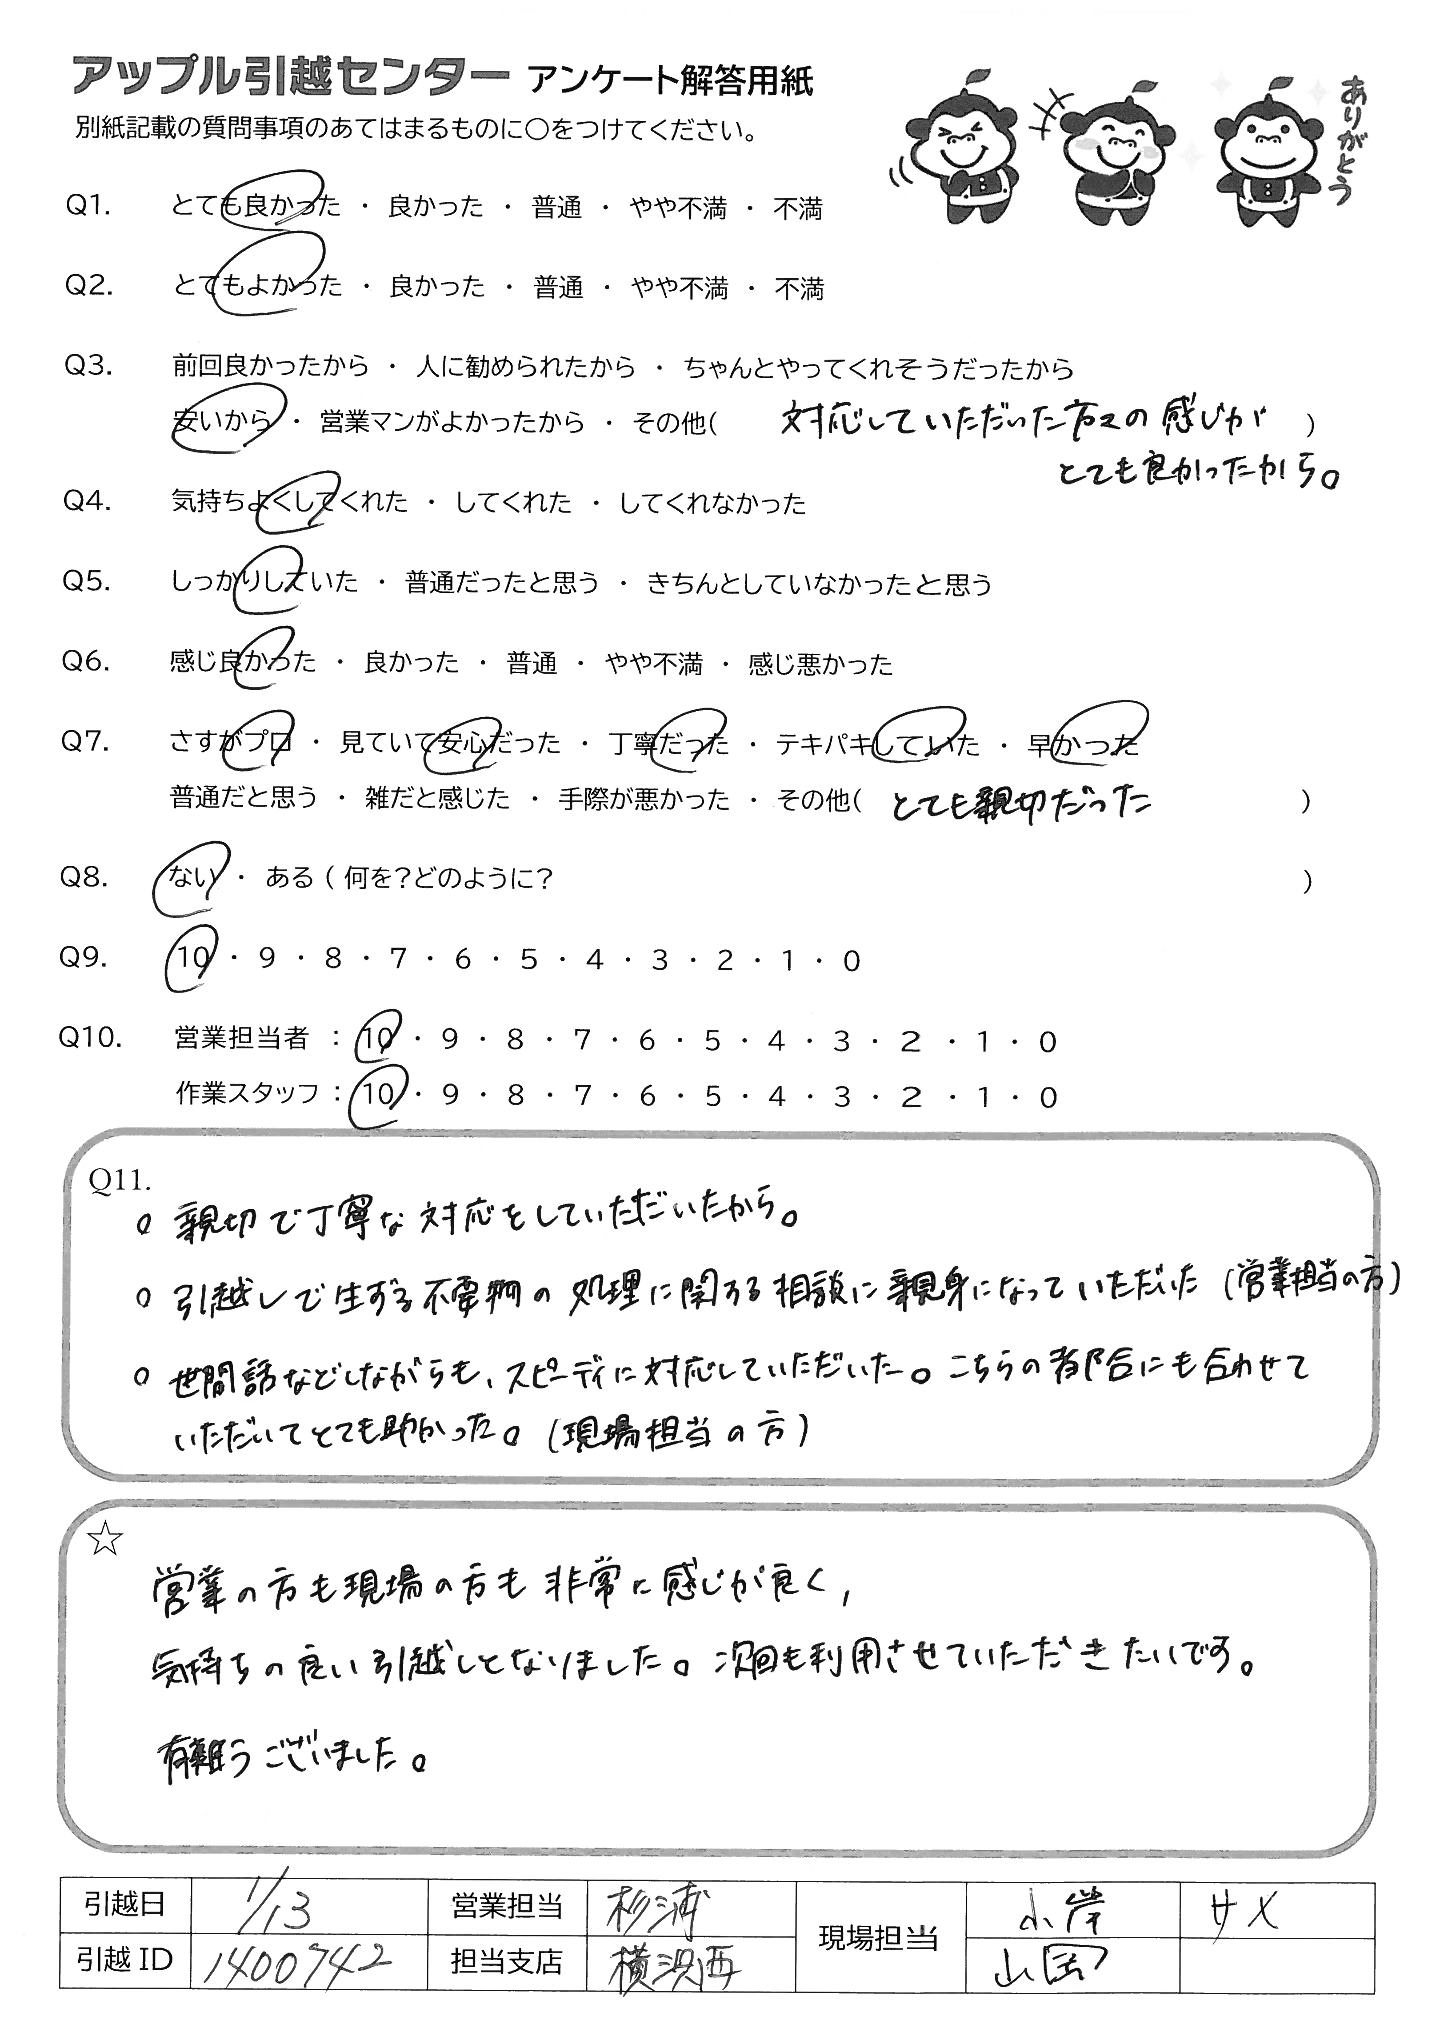 アップル引越センター アンケート解答用紙
別紙記載の質問事項のあてはまるものに○をつけてください。
ありがとう
Q1. とても良かった ・ 良かった ・ 普通 ・ やや不満 ・ 不満
Q2. とてもよかった ・ 良かった ・ 普通 ・ やや不満 ・ 不満
Q3. 前回良かったから ・ 人に勧められたから ・ ちゃんとやってくれそうだったから
安いから ・ 営業マンがよかったから ・ その他( 対応していただいた方々の感じが )
とても良かったから。
Q4. 気持ちよくしてくれた ・ してくれた ・ してくれなかった
Q5. しっかりしていた ・ 普通だったと思う ・ きちんとしていなかったと思う
Q6. 感じ良かった ・ 良かった ・ 普通 ・ やや不満 ・ 感じ悪かった
Q7. さすがプロ ・ 見ていて安心だった ・ 丁寧だった ・ テキパキしていた ・ 早かった
普通だと思う ・ 雑だと感じた ・ 手際が悪かった ・ その他( とても親切だった )
Q8. ない ・ ある ( 何を?どのように? )
Q9. 10 ・ 9 ・ 8 ・ 7 ・ 6 ・ 5 ・ 4 ・ 3 ・ 2 ・ 1 ・ 0
Q10. 営業担当者 : 10 ・ 9 ・ 8 ・ 7 ・ 6 ・ 5 ・ 4 ・ 3 ・ 2 ・ 1 ・ 0
作業スタッフ : 10 ・ 9 ・ 8 ・ 7 ・ 6 ・ 5 ・ 4 ・ 3 ・ 2 ・ 1 ・ 0
Q11.
○ 親切で丁寧な対応をしていただいたから。
○ 引越しで生ずる不要物の処理に関する相談に親身になっていただいた (営業担当の方)
○ 世間話などしながらも、スピーディに対応していただいた。こちらの都合にも合わせて
いただいてとても助かった。(現場担当の方)
☆
営業の方も現場の方も非常に感じが良く,
気持ちの良い引越しとなりました。次回も利用させていただきたいです。
有難うございました。
引越日 1/13 営業担当 杉浦 現場担当 小岸 サメ
引越ID 1400742 担当支店 横浜西 山岡